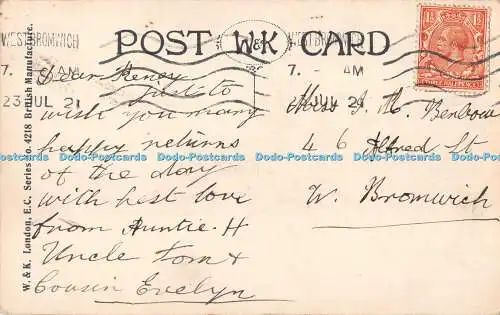 POST W&K CARD
WEST BROMWICH
7. AM
23 JUL 21
WEST BROMWICH
7. AM
JUL 21
W. & K. London, E.C. Series No. 4218 British Manufacture.
Dear
Just to
wish you many
happy returns
of the day
with best love
from Auntie H
Uncle Tom &
Cousin Evelyn
Miss I. M. Benbow
46 Alfred St
W. Bromwich
Dodo-Postcards Dodo-Postcards Dodo-Postcards Dodo-Postcards Dodo-Postcards Dodo-Postcards